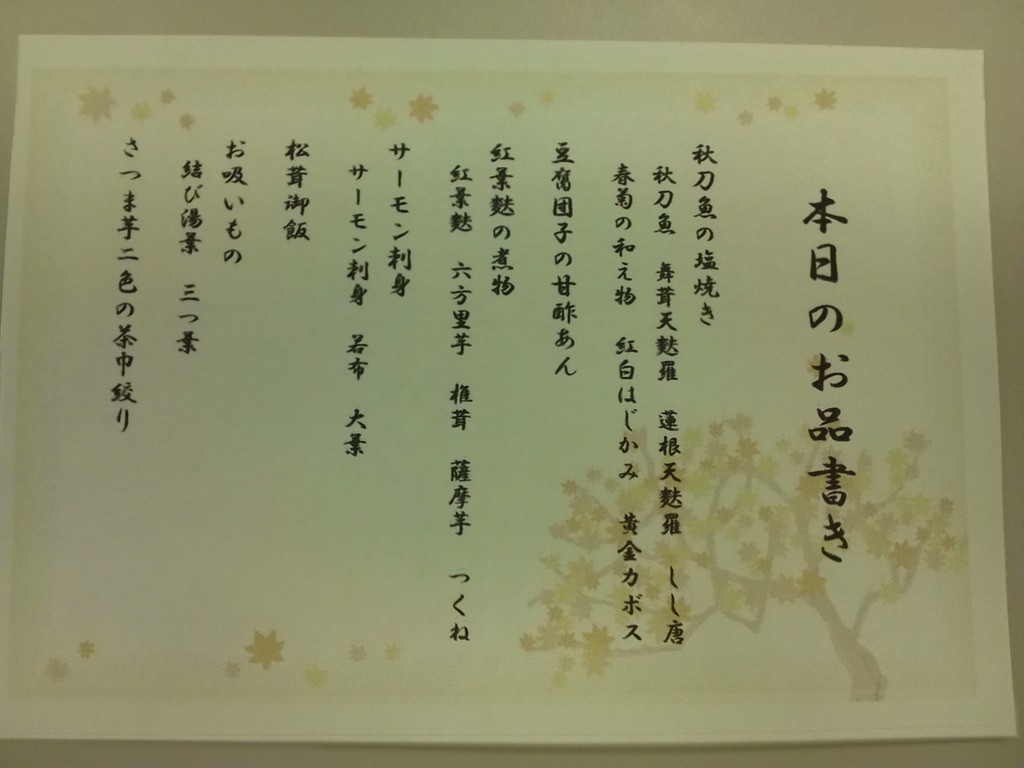 本日のお品書き
秋刀魚の塩焼き
秋刀魚　舞茸天麩羅　蓮根天麩羅　しし唐
春菊の和え物　紅白はじかみ　黄金カボス
豆腐団子の甘酢あん
紅葉麩の煮物
紅葉麩　六方里芋　椎茸　薩摩芋　つくね
サーモン刺身
サーモン刺身　若布　大葉
松茸御飯
お吸いもの
結び湯葉　三つ葉
さつま芋二色の茶巾絞り